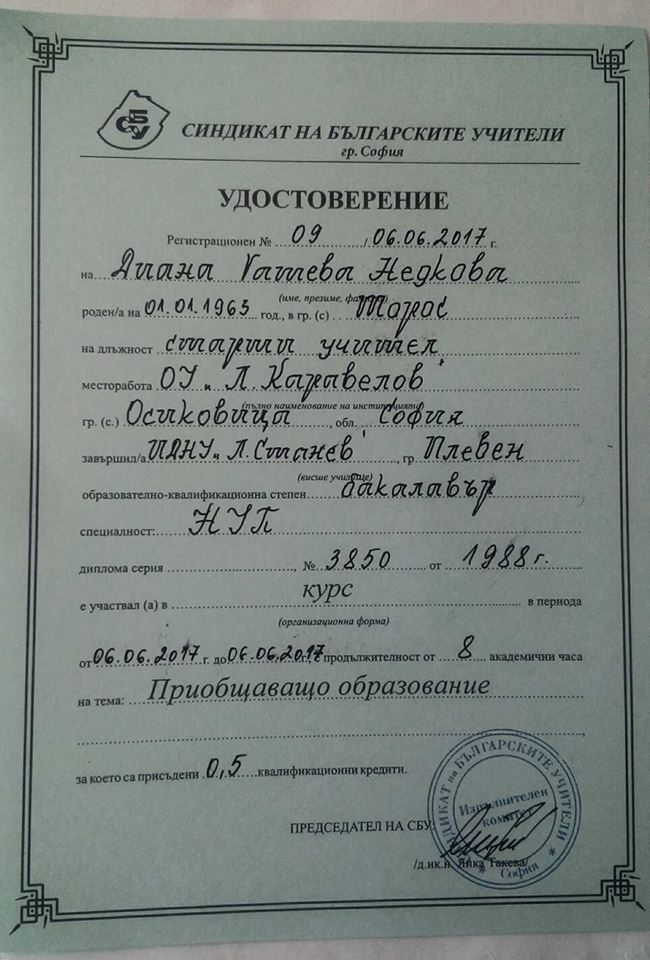 СБУ
СИНДИКАТ НА БЪЛГАРСКИТЕ УЧИТЕЛИ
гр. София
УДОСТОВЕРЕНИЕ
Регистрационен № 09 / 06.06.2017 г.
на Диана Недкова
(име, презиме, фамилия)
роден/а на 01.01.1963 год., в гр. (с) Тарос
на длъжност старши учител
месторабота ОУ "Л. Каравелов"
(пълно наименование на институцията)
гр. (с.) Осиковица, обл. София
завършил/а "Л. Станев", гр. Плевен
(висше училище)
образователно-квалификационна степен бакалавър
специалност: НУП
диплома серия , № 3850 от 1988 г.
е участвал (а) в курс в периода
(организационна форма)
от 06.06.2017 г. до 06.06.2017 г., с продължителност от 8 академични часа
на тема: Приобщаващо образование
за което са присъдени 0,5 квалификационни кредити.
ПРЕДСЕДАТЕЛ НА СБУ:
/д.ик.н. Янка Такева/
СИНДИКАТ на БЪЛГАРСКИТЕ УЧИТЕЛИ
Изпълнителен
комитет
София